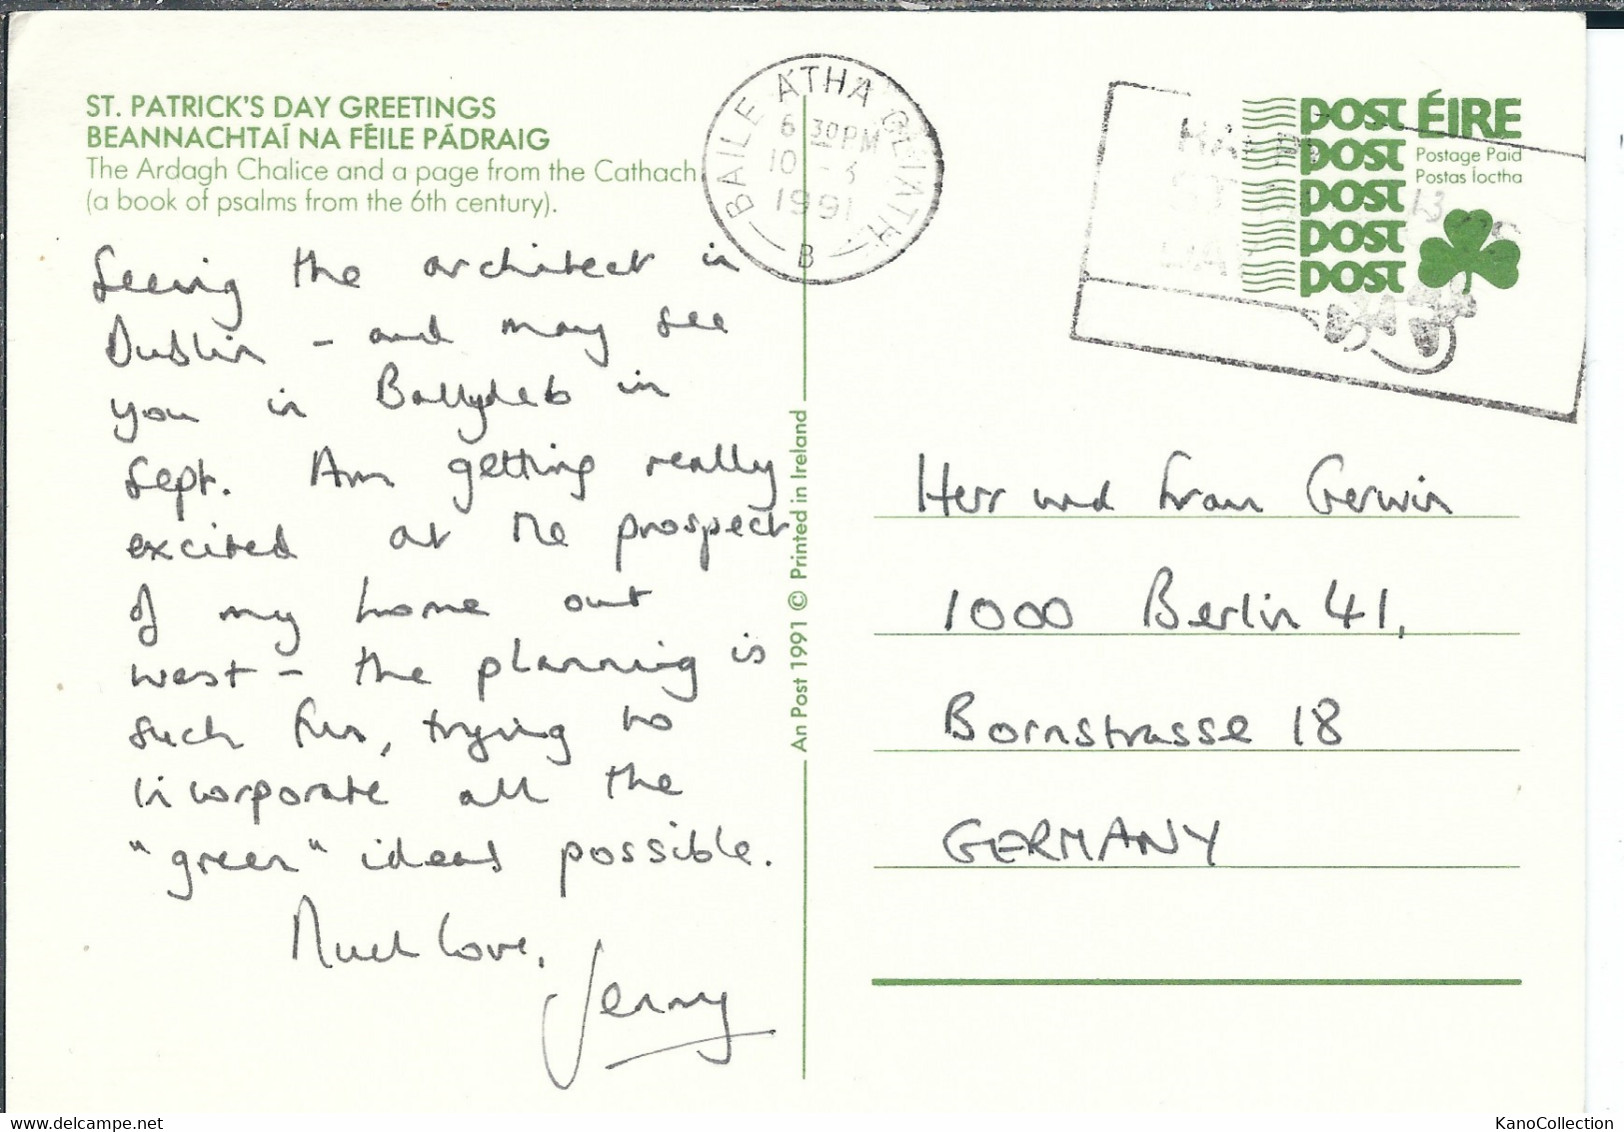 ST. PATRICK'S DAY GREETINGS
BEANNACHTAÍ NA FÉILE PÁDRAIG
The Ardagh Chalice and a page from the Cathach
(a book of psalms from the 6th century).
Seeing the architect in
Dublin - and may see
you in Ballydeb in
Sept. Am getting really
excited at the prospect
of my home out
west - the planning is
such fun, trying to
incorporate all the
"green" ideas possible.
Much love,
Jenny
BAILE ÁTHA CLIATH
6 30PM
10 - 3
1991
B
An Post 1991 © Printed in Ireland
POST ÉIRE
POST Postage Paid
POST Postas Íoctha
POST
POST
Herr und Frau Gerwin
1000 Berlin 41,
Bornstrasse 18
GERMANY
www.delcampe.net
KanoCollection